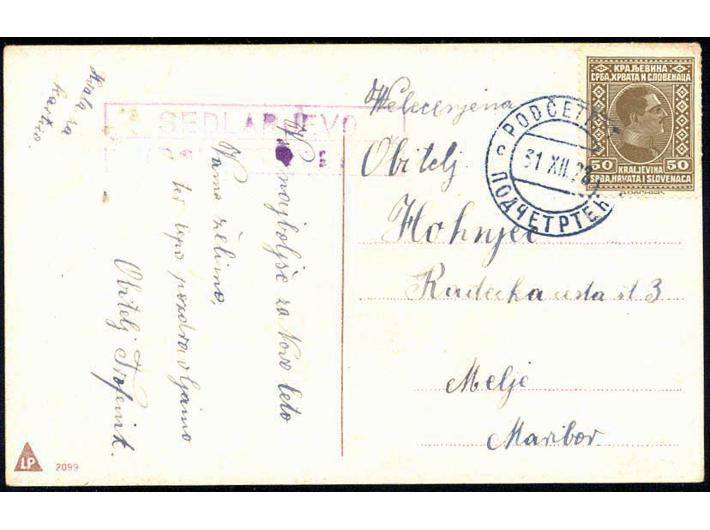 Hvala za
kartico
SEDLARJEVO
Vse najboljše za Novo leto
Vama želimo,
ter lepo pozdravljamo
Obitelj
Velecenjena
Obitelj
Hohnjec
cesta št 3
Melje
Maribor
PODČETRTEK
31 XII
ПОДЧЕТРТЕК
КРАЉЕВИНА
СРБА, ХРВАТА И СЛОВЕНАЦА
50 50
KRALJEVINA
SRBA, HRVATA I SLOVENACA
LP
2099